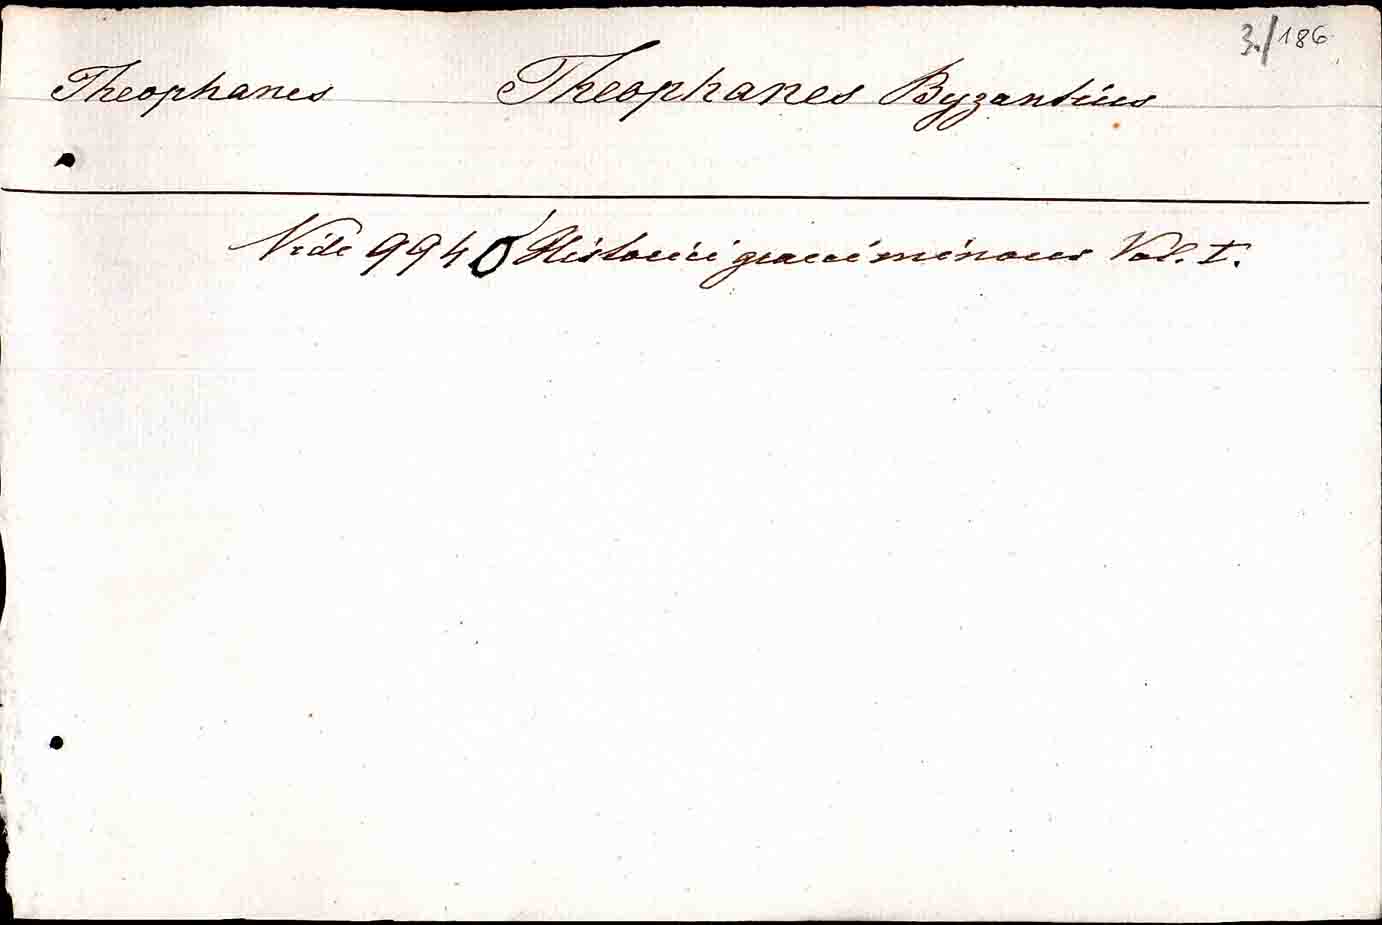 3./186
Theophanes Theophanes Byzantius
Vide 9940 Historici graeci minores Vol. I.